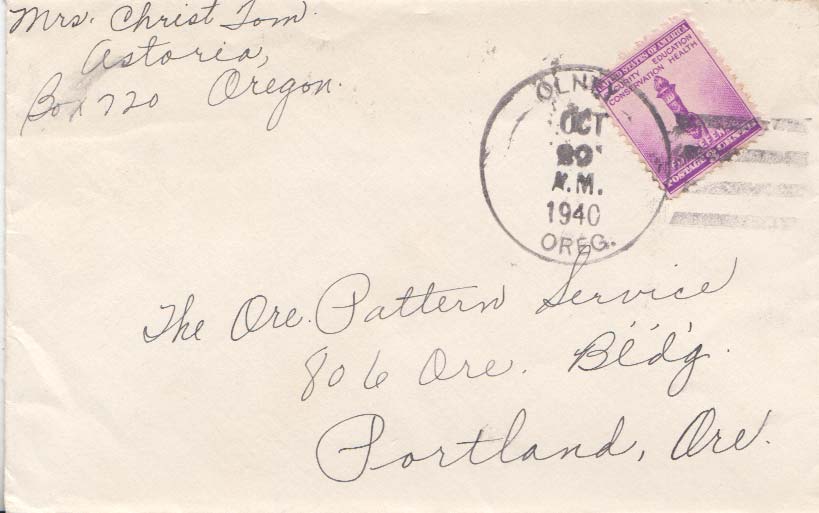 Mrs. Christ Tom.
Astoria,
Box 720 Oregon.
OLNEY
OCT
A.M.
1940
OREG.
UNITED STATES OF AMERICA
SECURITY EDUCATION
CONSERVATION HEALTH
POSTAGE
The Ore. Pattern Service
806 Ore. Bldg.
Portland, Ore.